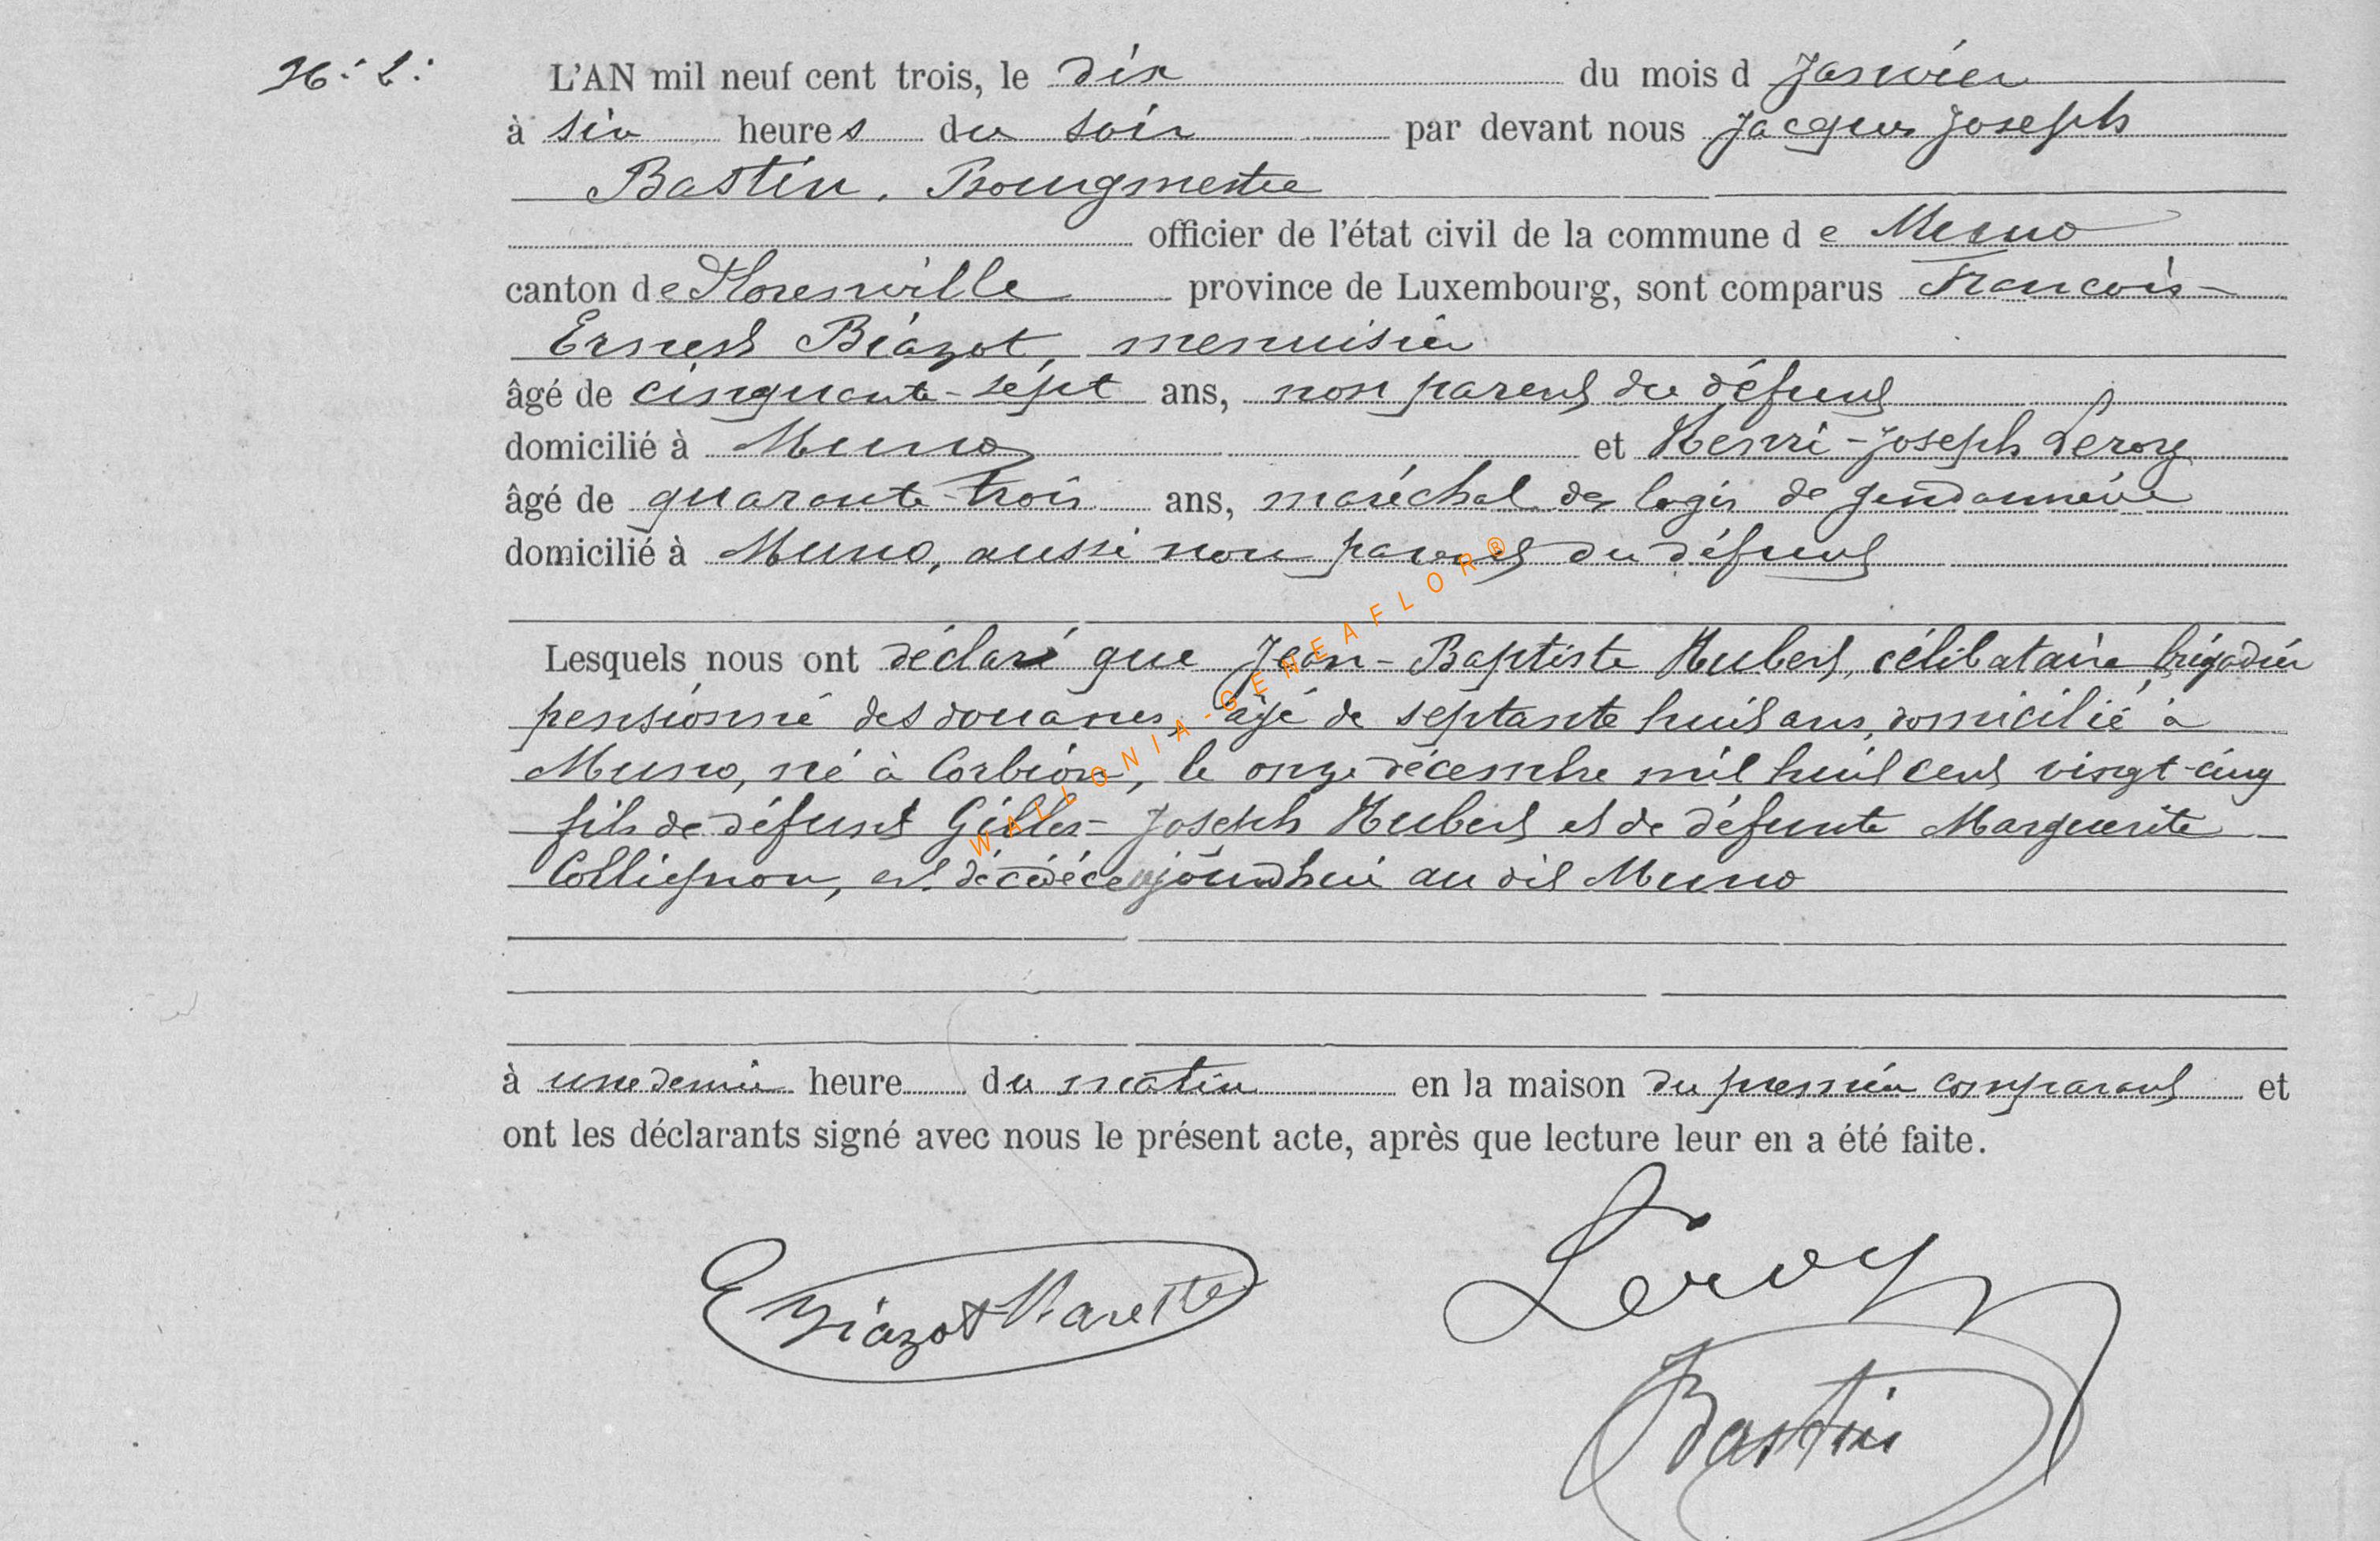 N.º 2.
L'AN mil neuf cent trois, le dix du mois d Janvier
à six heures du soir par devant nous Jacques Joseph
Bastin, Bourgmestre
officier de l'état civil de la commune de Muno
canton de Florenville province de Luxembourg, sont comparus Francois-
Ernest Biazot, menuisier
âgé de cinquante-sept ans, non parent du défunt
domicilié à Muno et Henri-Joseph Leroy
âgé de quarante-trois ans, maréchal des logis de gendarmerie
domicilié à Muno, aussi non parent du défunt
Lesquels nous ont déclaré que Jean-Baptiste Hubert, célibataire, brigadier
pensionné des douanes, âgé de septante huit ans, domicilié à
Muno, né à Corbion, le onze décembre mil huit cent vingt-cinq
fils de défunt Gilles-Joseph Hubert et de défunte Marguerite
Collignon, est décédé aujourd'hui au dit Muno
à une demie heure du matin en la maison du premier comparant et
ont les déclarants signé avec nous le présent acte, après que lecture leur en a été faite.
E Biazot Leroy
Bastin
WALLONIA-GENEAFLOR®